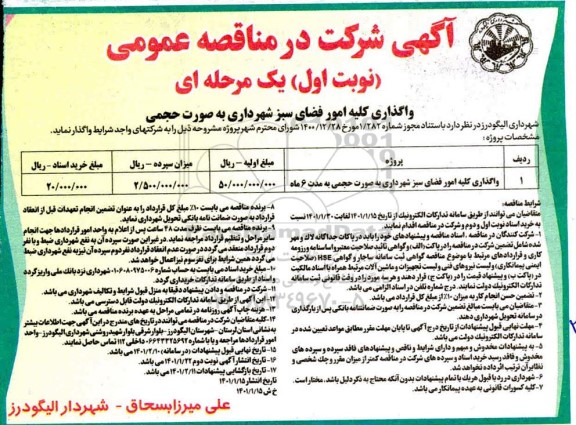 آگهی شرکت در مناقصه عمومی
(نوبت اول) یک مرحله ای
واگذاری کلیه امور فضای سبز شهرداری به صورت حجمی
شهرداری الیگودرز در نظر دارد باستناد مجوز شماره ۱/۲۸۲ مورخ ۱۴۰۰/۱۲/۲۸ شورای محترم شهر پروژه مشروحه ذیل را به شرکتهای واجد شرایط واگذار نماید.
مشخصات پروژه :
ردیف پروژه مبلغ اولیه - ریال میزان سپرده - ریال مبلغ خرید اسناد - ریال
۱ واگذاری کلیه امور فضای سبز شهرداری به صورت حجمی به مدت ۶ ماه ۵۰/۰۰۰/۰۰۰/۰۰۰ ۲/۵۰۰/۰۰۰/۰۰۰ ۲۰/۰۰۰/۰۰۰
شرایط مناقصه:
متقاضیان می توانند از طریق سامانه تدارکات الکترونیک از تاریخ ۱۴۰۱/۱/۱۵ لغایت ۱۴۰۱/۱/۳۰ نسبت
به خرید اسناد نوبت اول و دوم و شرکت در مناقصه اقدام نمایند.
۱- شرکت کنندگان در مناقصه ، اسناد مناقصه و پیشنهادهای خود را باید در پاکات جداگانه لاک و مهر
شده شامل تضمین شرکت در مناقصه را در پاکت (الف) و گواهی تائید صلاحیت معتبر و اساسنامه و رزومه
کاری و قراردادهای مرتبط با موضوع مناقصه گواهی ثبت سامانه ساجار و گواهی HSE (صلاحیت
ایمنی پیمانکاری) و لیست نیروهای فنی و لیست تجهیزات و ماشین آلات مرتبط همراه با اسناد مالکیت
در پاکت ب و پیشنهاد قیمت را در پاکت ج قرار دهند و هر سه مورد را در وقت قانونی ثبت سامانه
تدارکات الکترونیک دولت نمایند. درج شماره تلفن در اسناد الزامی می باشد.
۲- تضمین حسن انجام کار به میزان ۱۰٪ از مبلغ کل قرارداد می باشد.
۳- متقاضیان می بایست مبالغ تضمین شرکت در مناقصه را به صورت ضمانتنامه بانکی پس از بارگذاری
در سامانه تحویل شهرداری دهند.
۴- مهلت نهایی قبول پیشنهادات از تاریخ درج آگهی تا پایان مهلت مقرر مطابق مواعد تعیین شده در
سامانه تدارکات الکترونیک دولت می باشد.
۵- به پیشنهادات مخدوش و مبهم و دارای شرایط و ناقص و پیشنهادهای فاقد سپرده و سپرده های
مخدوش و فاقد رسید خرید اسناد و سپرده های شرکت در مناقصه کمتر از میزان مقرر و چک شخصی و
نظایر آن ترتیب اثر داده نخواهد شد.
۶- شهرداری در رد یا قبول هر یک یا تمام پیشنهادات بدون آنکه محتاج به ذکر دلیل باشد. مختار است.
۷- کلیه کسورات قانونی به عهده پیمانکار می باشد.
۸- برنده مناقصه می بایست ۱۰٪ مبلغ کل قرارداد را به عنوان تضمین انجام تعهدات قبل از انعقاد
قرارداد به صورت ضمانت نامه بانکی تحویل شهرداری نماید.
۹- برنده مناقصه می بایست ظرف مدت ۴۸ ساعت پس از اعلام به واحد امور قراردادها جهت انجام
سایر مراحل و تنظیم قرارداد مراجعه نماید. در غیر این صورت سپرده آن به نفع شهرداری ضبط و با نفر
دوم قرارداد منعقد می گردد در صورت عدم انعقاد قرارداد نفر دوم سپرده آن نیز به نفع شهرداری ضبط
می گردد همین شرایط برای نفر سوم نیز اعمال خواهد شد.
۱۰- مبلغ خرید اسناد می بایست به حساب شماره شهرداری نزد بانک ملی واریز گردد
و اسناد از طریق سامانه تدارکات خریداری گردد.
۱۱- شرکت در مناقصه و دادن پیشنهاد دقیقا به منزل قبول شرایط و تکالیف شهرداری می باشد.
۱۲- این آگهی از طریق سامانه تدارکات الکترونیک دولت قابل دسترسی می باشد.
۱۳- هزینه چاپ آگهی روزنامه در تمامی مراحل به عهده برنده مناقصه می باشد.
۱۴- کلیه متقاضیان شرکت در مناقصه می توانند در تاریخ های مندرج در این آگهی جهت اطلاعات بیشتر
به نشانی استان لرستان - شهرستان الیگودرز - بلوار شرقی بلوار شهید روشنی شهرداری الیگودرز - واحد
امور قراردادها مراجعه و یا با شماره داخلی ۱۱۲ تماس حاصل نمایند.
۱۵- تاریخ نهایی قبول پیشنهادات (در سامانه) ۱۴۰۱/۲/۱۰ می باشد.
۱۶- تاریخ انتشار آگهی نوبت دوم ۱۴۰۱/۱/۲۲ می باشد.
۱۷- تاریخ بازگشایی پیشنهادات ۱۴۰۱/۲/۱۱ می باشد.
تاریخ انتشار ۱۴۰۱/۱/۱۵
خ ش ۱۴۰۱/۱/۱۵
علی میرزابسحاق - شهردار الیگودرز